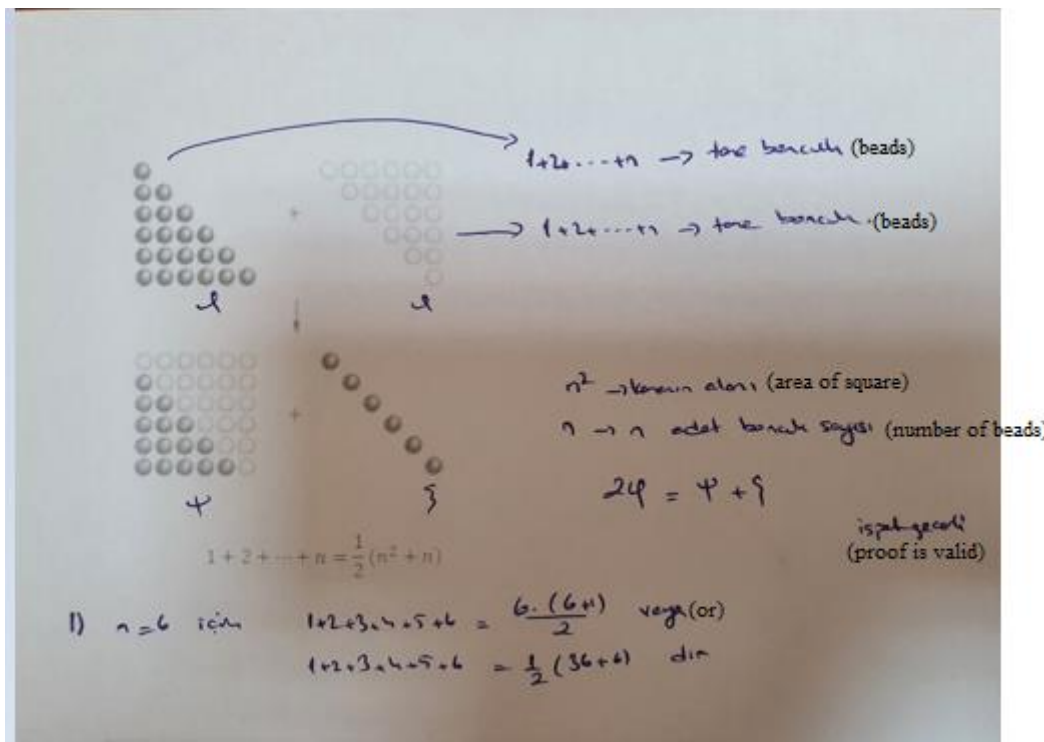 1+2+...+n → tane boncuk (beads)
1+2+...+n → tane boncuk (beads)
n² → karenin alanı (area of square)
n → n adet boncuk sayısı (number of beads)
2φ = ψ + ξ
ψ ξ
ispat geçerli
(proof is valid)
1 + 2 + ⋯ + n = 1/2 (n² + n)
1) n=6 için 1+2+3+4+5+6 = 6.(6+1)/2 veya (or)
1+2+3+4+5+6 = 1/2 (36+6) dır